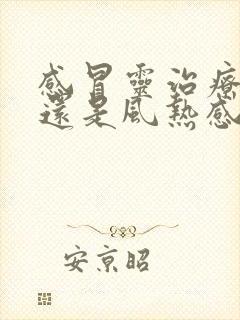 感冒靈治療
還是風熱感
安京昭